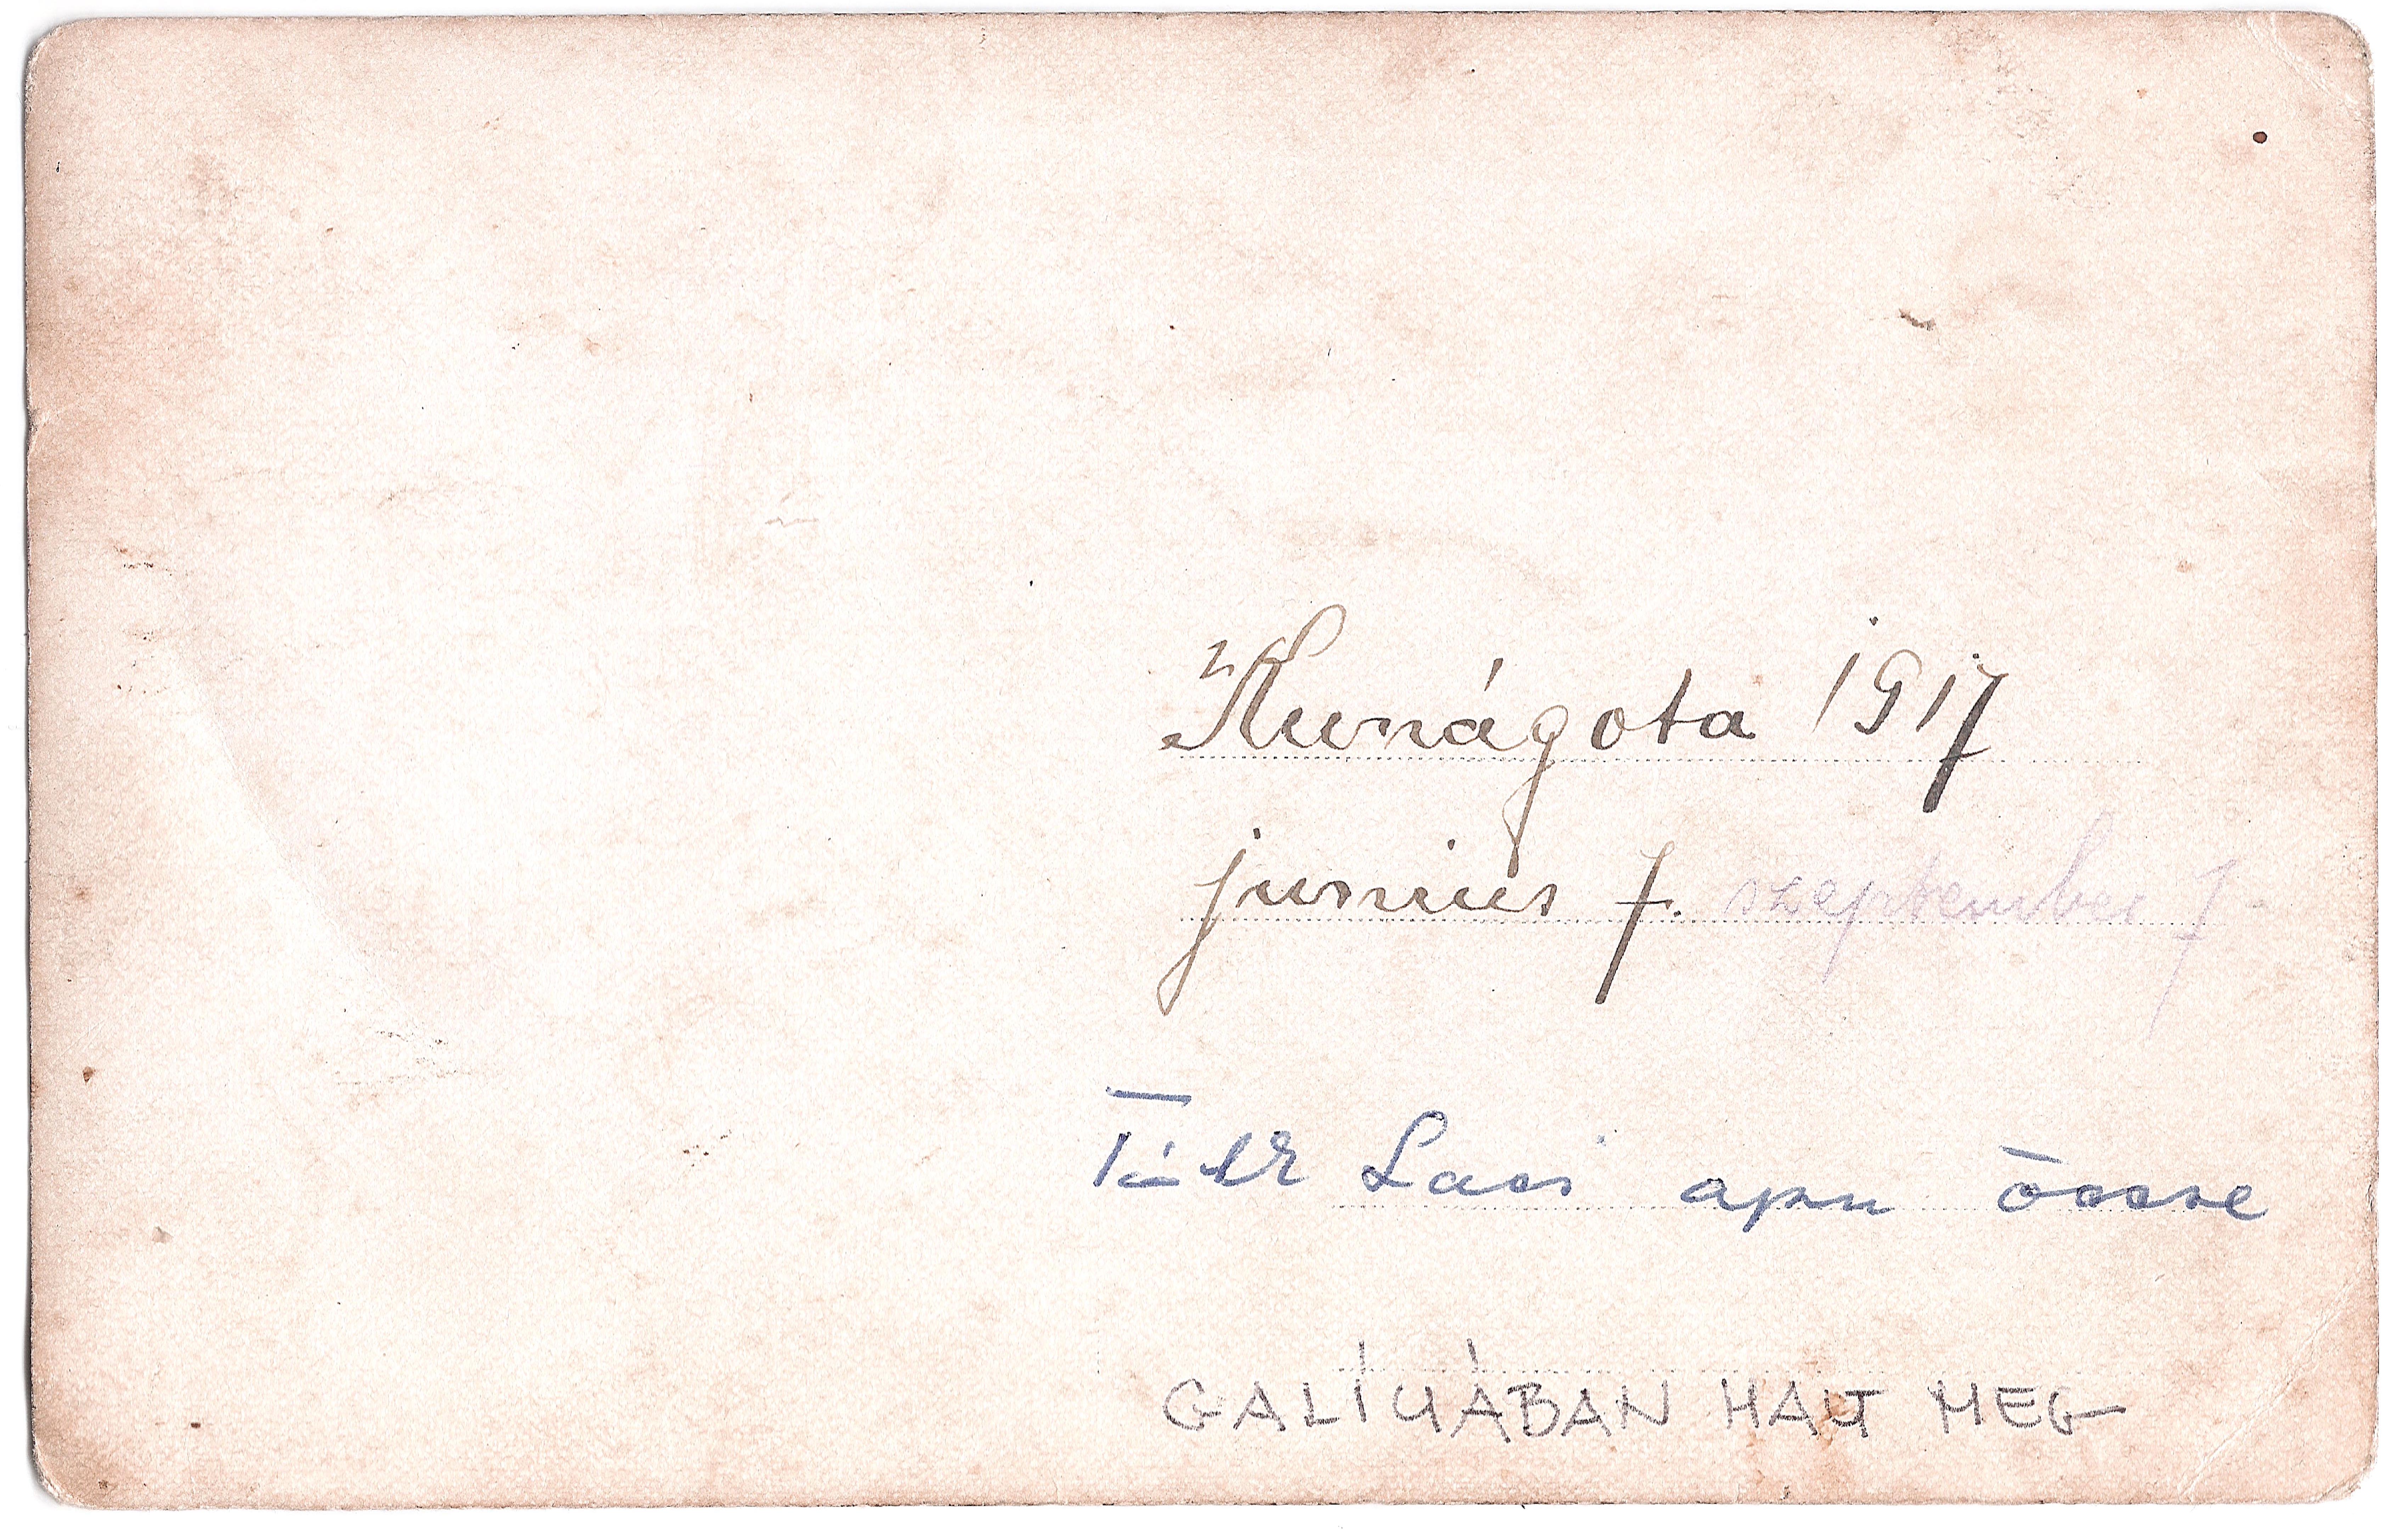 Kunágota 1917
junius 7. szeptember 7-
Laci apu öccse
GALÍCIÁBAN HALT MEG